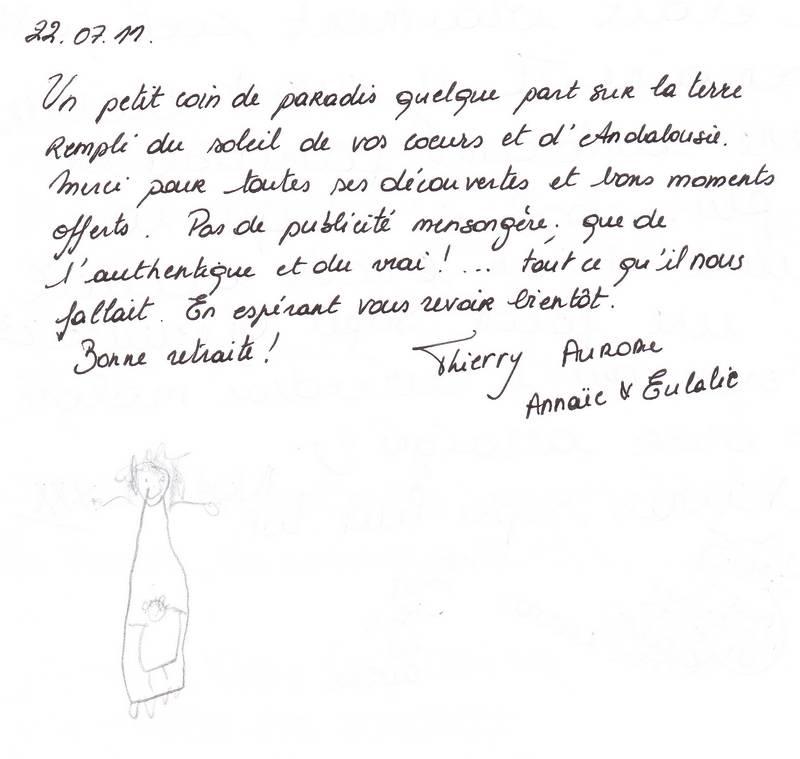 22.07.11.
Un petit coin de paradis quelque part sur la terre
Rempli du soleil de vos coeurs et d'Andalousie.
Merci pour toutes ses découvertes et bons moments
offerts. Pas de publicité mensongère. que de
l'authentique et du vrai!... tout ce qu'il nous
fallait. En espérant vous revoir bientôt.
Bonne retraite!
Thierry Aurore
Annaïc & Eulalie